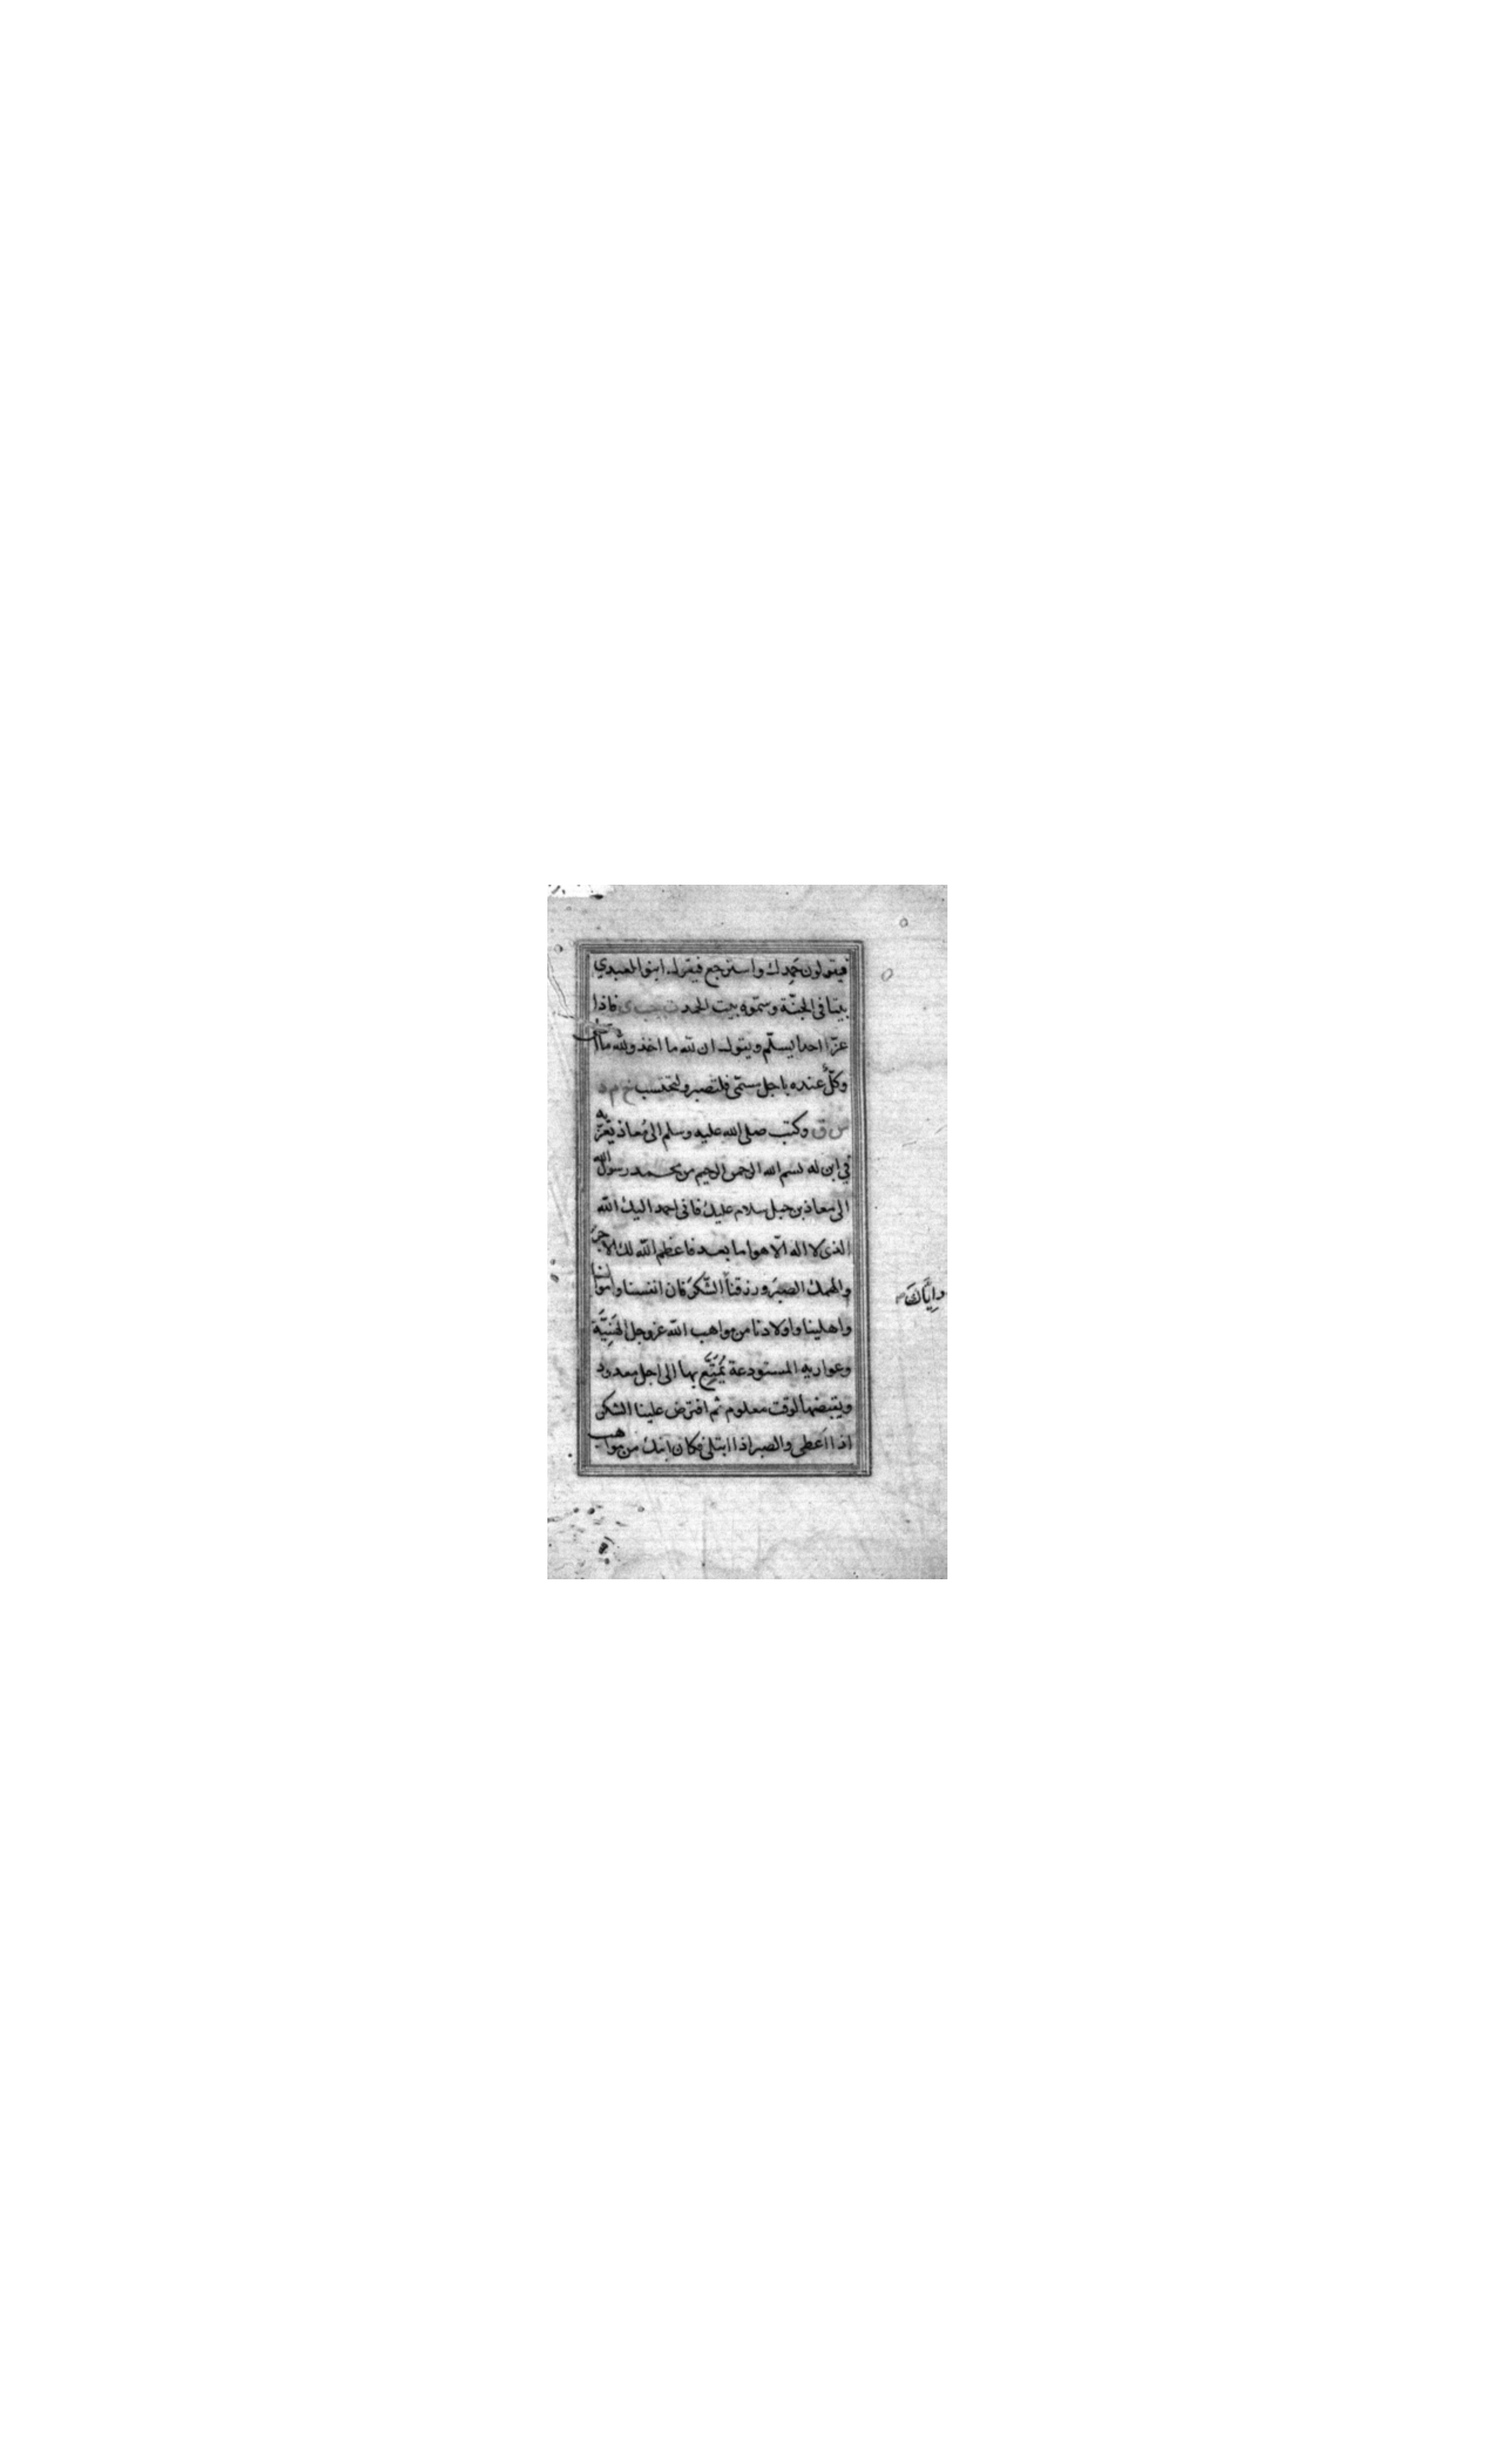 فيقولون حَمِدك واسترجع فيقول ابنوا لعبدي
بيتا فى الجنّة وسمّوه بيت الحمد ت حب ى فاذا
عزّا احدا يسلّم ويقول ان لله ما اخذ ولله ما اعطى
وكلٌّ عنده باجل مسمّى فلتصبر ولتحتسب خ م د
س ق وكتب صلى الله عليه وسلم الى مُعاذ يُعَزّيه
في ابن له بسم الله الرحمن الرحيم من محمد رسول الله
الى معاذ بن جبل سلام عليك فانى احمد اليك الله
الذى لا اله الّا هو اما بعد فاعظم الله لك الاجرَ
والهمك الصبرَ ورزقنا الشكرَ فان انفسنا واموالنا
وايَّاكَ
واهلينا واولادنا من مواهب الله عز وجل الهَنِيَّة
وعواريه المستودعة يُمَتِّع بها الى اجل معدود
ويقبضها لوقت معلوم ثم افترض علينا الشكر
اذا اعطى والصبر اذا ابتلى فكان ابنك من مواهب